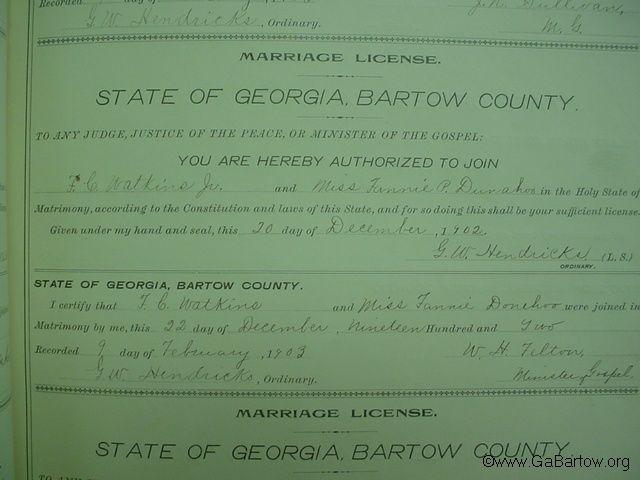 Recorded
J.R. Sullivan,
G.W. Hendricks, Ordinary. M. G.
MARRIAGE LICENSE.
STATE OF GEORGIA, BARTOW COUNTY.
TO ANY JUDGE, JUSTICE OF THE PEACE, OR MINISTER OF THE GOSPEL:
YOU ARE HEREBY AUTHORIZED TO JOIN
F. C. Watkins Jr. and Miss Fannie P. Dunahoo in the Holy State of
Matrimony, according to the Constitution and laws of this State, and for so doing this shall be your sufficient license.
Given under my hand and seal, this 20 day of December, 1902.
G.W. Hendricks (L. S.)
ORDINARY.
STATE OF GEORGIA, BARTOW COUNTY.
I certify that F. C. Watkins and Miss Fannie Donehoo were joined in
Matrimony by me, this 22 day of December, Nineteen Hundred and Two
Recorded 9 day of February, 1903 W. H. Felton,
G.W. Hendricks, Ordinary. Minister Gospel.
MARRIAGE LICENSE.
STATE OF GEORGIA, BARTOW COUNTY.
©www.GaBartow.org